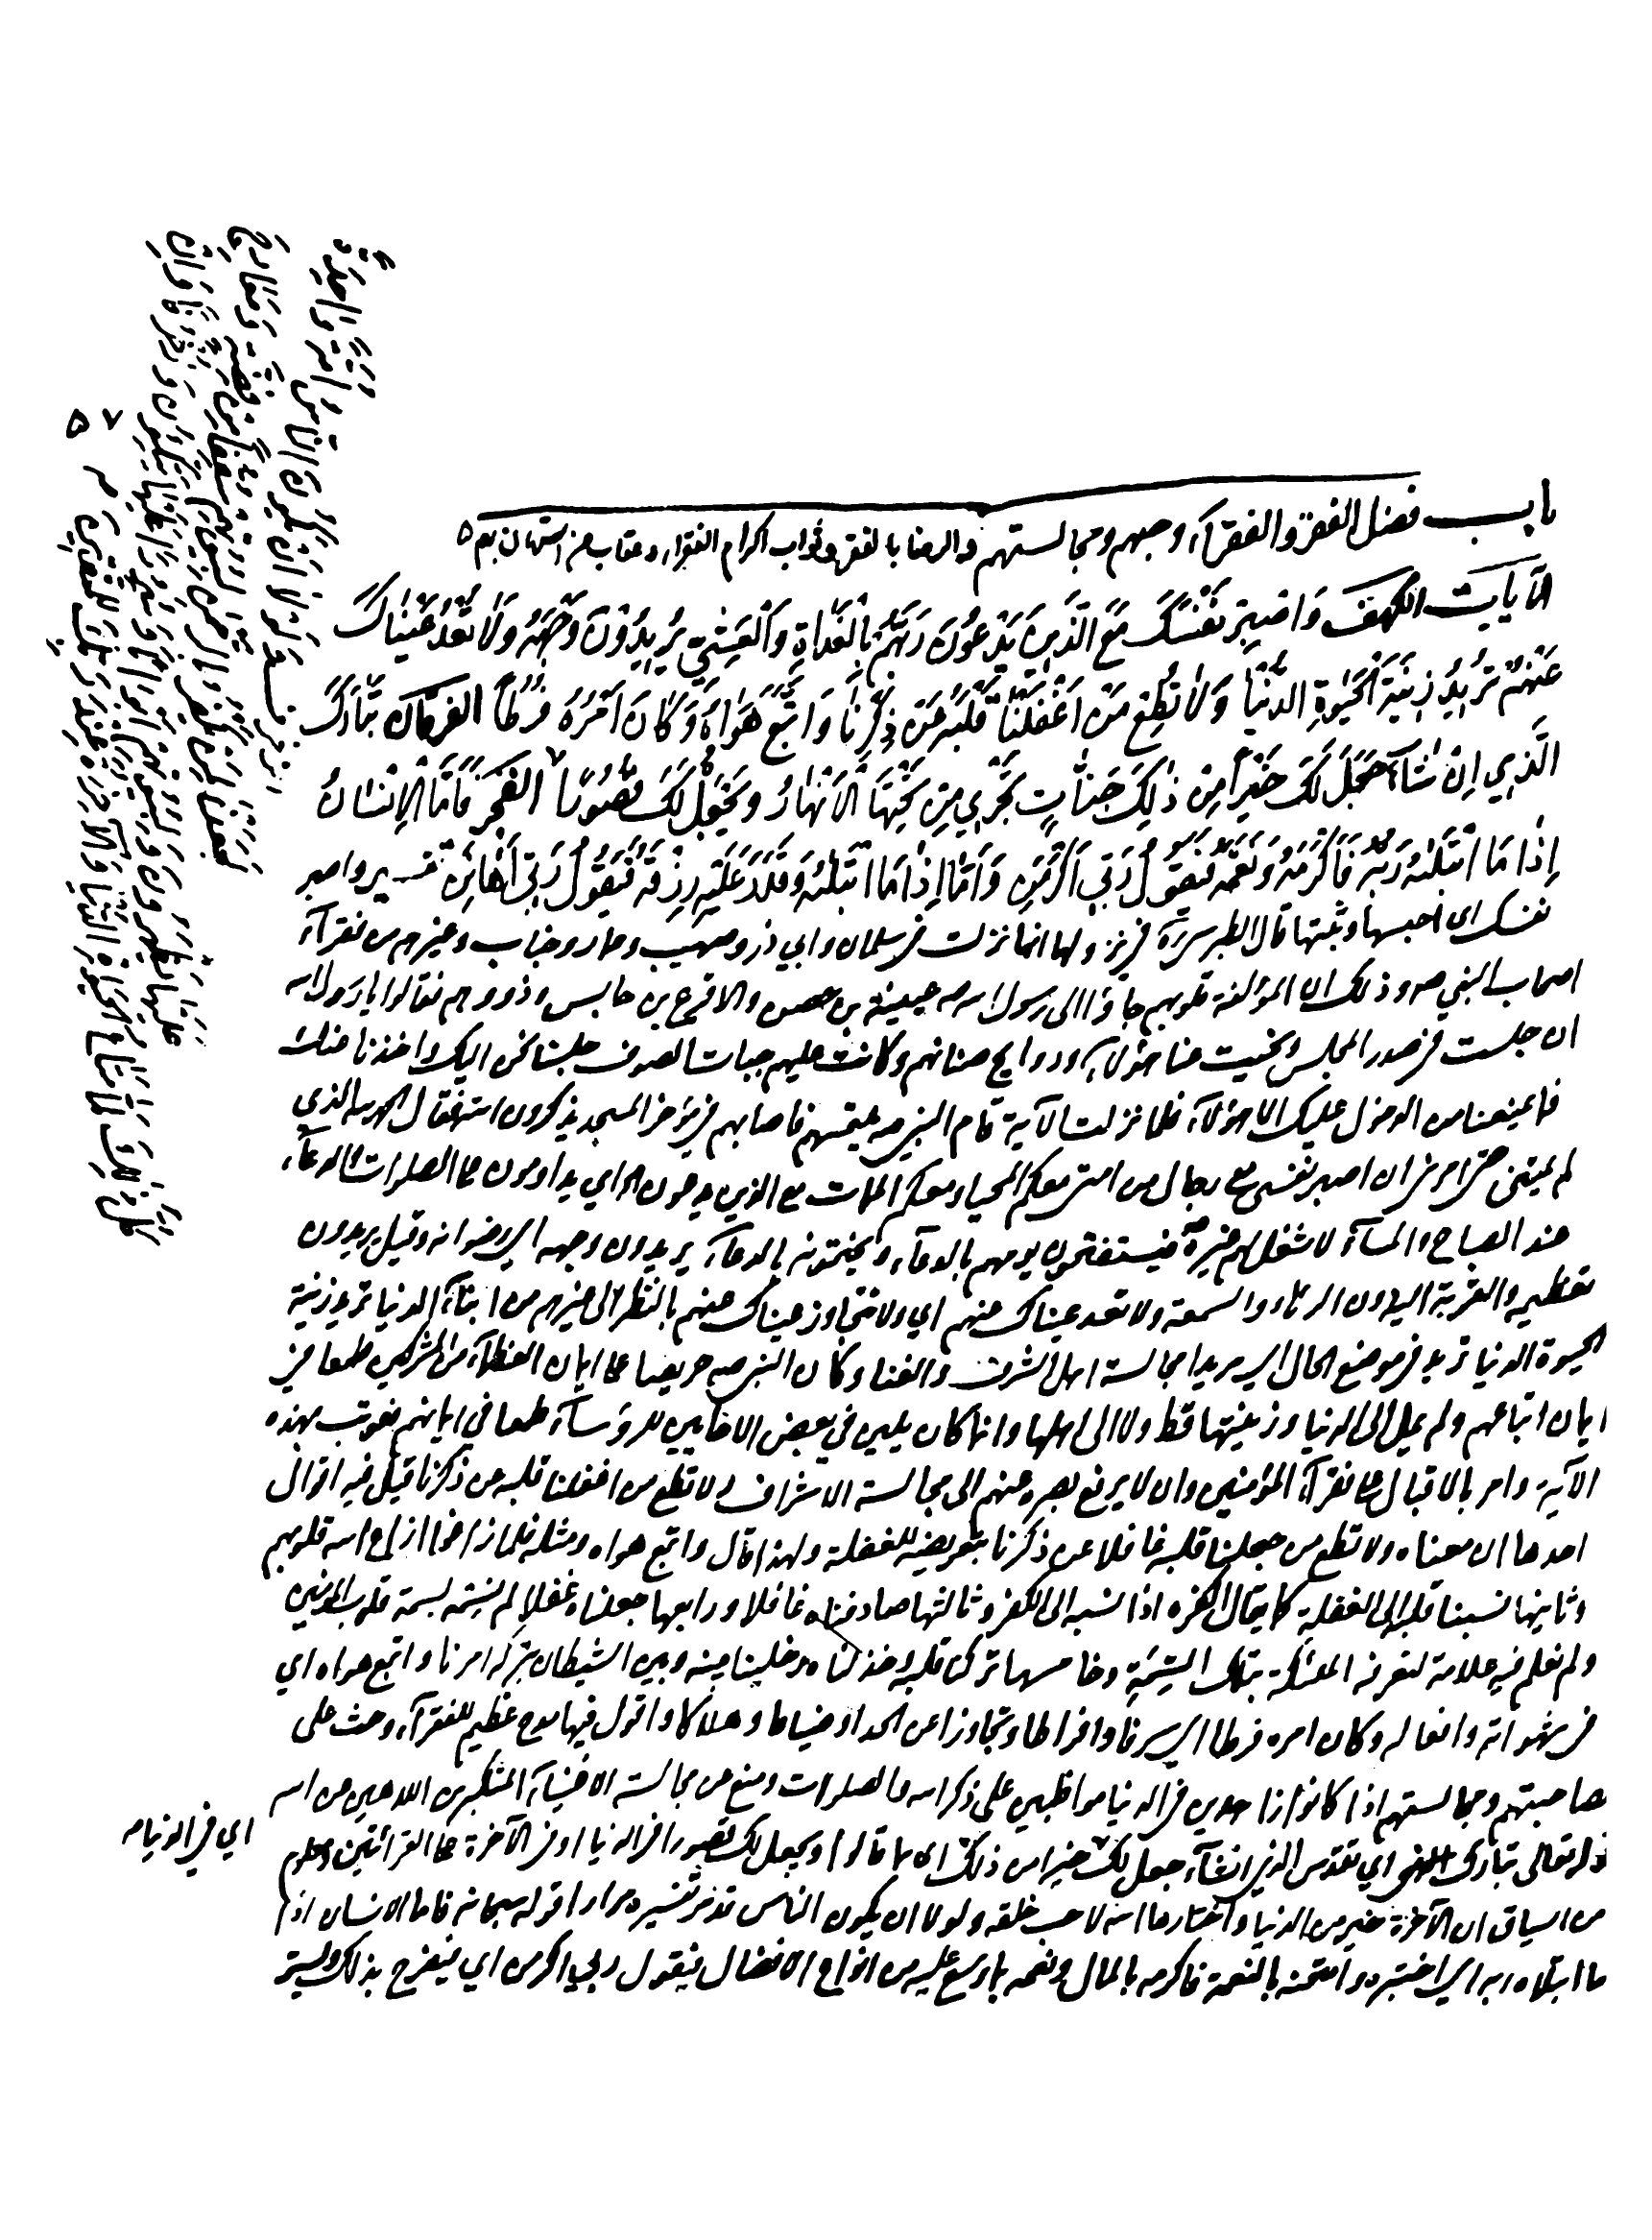 باب فضل الفقر والفقرآء وحبهم ومجالستهم والرضا بالفقر وثواب اكرام الفقراء وعقاب من استهان بهم
الآيات الكهف وَاصْبِرْ نَفْسَكَ مَعَ الَّذِينَ يَدْعُونَ رَبَّهُمْ بِالْغَدَاةِ وَالْعَشِيِّ يُرِيدُونَ وَجْهَهُ وَلَا تَعْدُ عَيْنَاكَ
عَنْهُمْ تُرِيدُ زِينَةَ الْحَيٰوةِ الدُّنْيَا وَلَا تُطِعْ مَنْ اَغْفَلْنَا قَلْبَهُ عَنْ ذِكْرِنَا وَاتَّبَعَ هَوَاهُ وَكَانَ اَمْرُهُ فُرُطًا الفرقان تَبَارَكَ
الَّذِي اِنْ شَآءَ جَعَلَ لَكَ خَيْرًا مِنْ ذٰلِكَ جَنَّاتٍ تَجْرِي مِنْ تَحْتِهَا الْاَنْهَارُ وَيَجْعَلْ لَكَ قُصُورًا الفجر فَاَمَّا الْاِنْسَانُ
اِذَا مَا ابْتَلٰيهُ رَبُّهُ فَاَكْرَمَهُ وَنَعَّمَهُ فَيَقُولُ رَبِّي اَكْرَمَنِ وَاَمَّا اِذَا مَا ابْتَلٰيهُ فَقَدَرَ عَلَيْهِ رِزْقَهُ فَيَقُولُ رَبِّي اَهَانَنِ تفسير واصبر
نفسك اي احبسها وثبتها قال الطبرسي ره في نزولها انها نزلت في سلمان وابي ذر وصهيب وعمار وخباب وغيرهم من فقرآء
اصحاب النبي ص وذلك ان المؤلفة قلوبهم جاؤا الى رسول الله ص عيينة بن حصن والاقرع بن حابس وذووهم فقالوا يا رسول الله
ان جلست في صدر المجلس ونحيت عنا هؤلآء وروايح صنانهم وكانت عليهم جبات الصوف جلسنا نحن اليك واخذنا عنك
فما يمنعنا من الدخول عليك الا هؤلآء فلما نزلت الآية قام النبي ص يلتمسهم فاصابهم في مؤخر المسجد يذكرون الله فقال الحمد لله الذي
لم يمتني حتى امرني ان اصبر نفسي مع رجال من امتي معكم المحيا ومعكم الممات مع الذين يدعون ربهم اي يداومون على الصلوات والدعآء
عند الصباح والمسآء لا شغل لهم غيره فيستفتحون يومهم بالدعآء ويختمونه بالدعآء يريدون وجهه اي رضوانه وقيل يريدون
تعظيمه والقربة اليه دون الرئاء والسمعة ولا تعد عيناك عنهم اي ولا تتجاوز عيناك عنهم بالنظر الى غيرهم من ابنآء الدنيا تريد زينة
الحيوة الدنيا تريد في موضع الحال اي مريدا مجالسة اهل الشرف والغنا وكان النبي ص حريصا على ايمان العظمآء من المشركين طمعا في
ايمان اتباعهم ولم يمل الى الدنيا وزينتها قط ولا الى اهلها وانما كان يلين في بعض الاحايين للرؤسآء طمعا في ايمانهم فعوتب بهذه
الآية وامر بالاقبال على فقرآء المؤمنين وان لا يرفع بصره عنهم الى مجالسة الاشراف ولا تطع من اغفلنا قلبه عن ذكرنا قيل فيه اقوال
احدها ان معناه ولا تطع من جعلنا قلبه غافلا عن ذكرنا بتعريضه للغفلة ولهذا قال واتبع هواه ومثله فلما زاغوا ازاغ الله قلوبهم
وثانيها نسبنا قلبه الى الغفلة كما يقال اكفره اذا نسبه الى الكفر وثالثها صادفناه غافلا ورابعها جعلناه غفلا لم نسمه بسمة قلوب المؤمنين
ولم نعلم فيه علامة لتعرفه الملئكة بتلك السمة وخامسها تركنا قلبه وخذلناه وخلينا بينه وبين الشيطان بتركه امرنا واتبع هواه اي
في شهواته وافعاله وكان امره فرطا اي سرفا وافراطا وتجاوزا عن الحد او ضياعا وهلاكا واقول فيها مدح عظيم للفقرآء وحث على
مصاحبتهم ومجالستهم اذا كانوا زاهدين في الدنيا مواظبين على ذكر الله والصلوات ومنع من مجالسة الاغنيآء المتكبرين اللاهين عن الله
قوله تعالى تبارك اي تقدس الذي ان شآء جعل لك خيرا من ذلك اي مما قالوا ويجعل لك قصورا في الدنيا او في الآخرة على القرائتين ومعلوم
من السياق ان الآخرة خير من الدنيا واختارها الله لاحب خلقه ولولا ان يكون الناس قد مر تفسيره مرارا قوله سبحانه فاما الانسان اذا
ما ابتلاه ربه اي اختبره وامتحنه بالنعمة فاكرمه بالمال ونعمه بما وسع عليه من انواع الافضال فيقول ربي اكرمن اي فيفرح بذلك ويسر
اي في الدنيا
الزخرف وَلَوْلَا اَنْ يَكُونَ النَّاسُ اُمَّةً وَاحِدَةً
لَجَعَلْنَا لِمَنْ يَكْفُرُ بِالرَّحْمٰنِ لِبُيُوتِهِمْ سُقُفًا مِنْ فِضَّةٍ وَمَعَارِجَ
عَلَيْهَا يَظْهَرُونَ وَلِبُيُوتِهِمْ اَبْوَابًا وَسُرُرًا عَلَيْهَا يَتَّكِئُونَ وَزُخْرُفًا وَاِنْ
كُلُّ ذٰلِكَ لَمَّا مَتَاعُ الْحَيٰوةِ الدُّنْيَا وَالْآخِرَةُ عِنْدَ رَبِّكَ لِلْمُتَّقِينَ